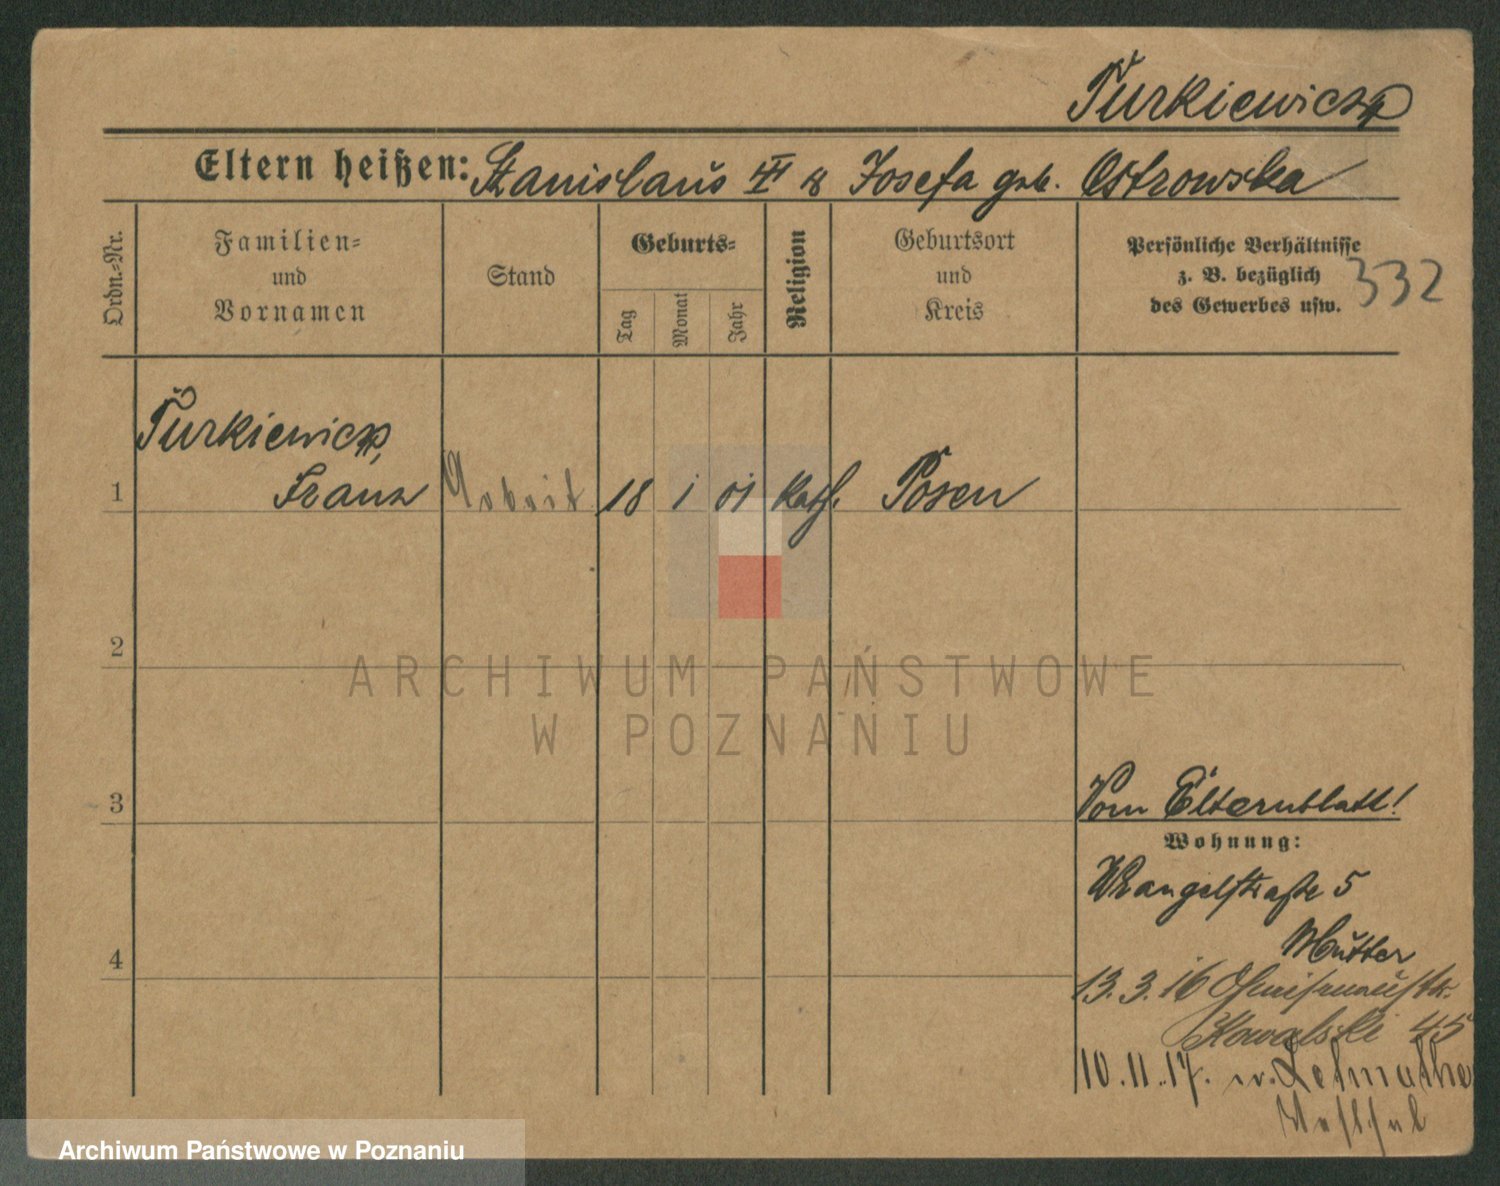 Turkiewicz
Eltern heißen: Stanislaus III & Josefa geb. Ostrowska
Ordn.-Nr.
Familien-
und
Vornamen
Stand
Geburts-
Tag
Monat
Jahr
Religion
Geburtsort
und
Kreis
Persönliche Verhältnisse
z. B. bezüglich
des Gewerbes usw.
332
Turkiewicz,
1 Franz Arbeit 18 1 01 kath. Posen
2
3
Vom Elternblatt!
Wohnung:
Wrangelstraße 5
4
Mutter
13.3.16
Kowalski 45
10.11.17. n. Letmathe
Westfal
ARCHIWUM PAŃSTWOWE
W POZNANIU
Archiwum Państwowe w Poznaniu